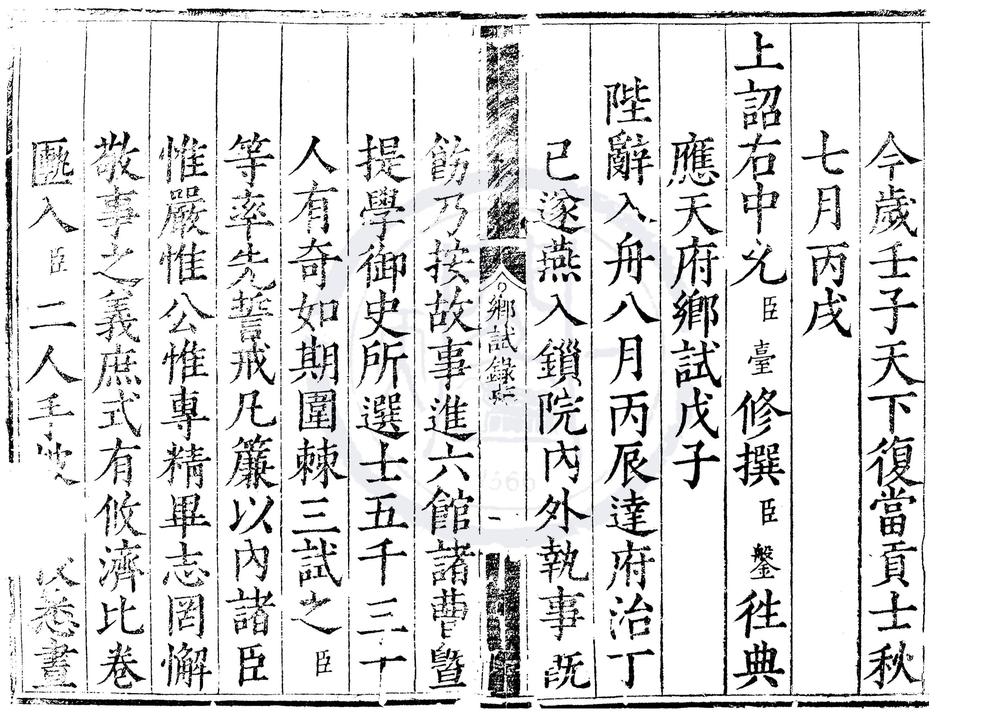 今歲壬子天下復當貢士秋
七月丙戌
上詔右中允臣臺修撰臣鑿徃典
應天府鄉試戊子
陛辭入舟八月丙辰達府治丁
巳遂燕入鎖院內外執事既
鄉試錄序
一
飭乃按故事進六館諸曹曁
提學御史所選士五千三十
人有奇如期圍棘三試之臣
等率先誓戒凡簾以內諸臣
惟嚴惟公惟專精畢志罔懈
敬事之義庶式有攸濟比卷
匭入臣二人手
卷晝